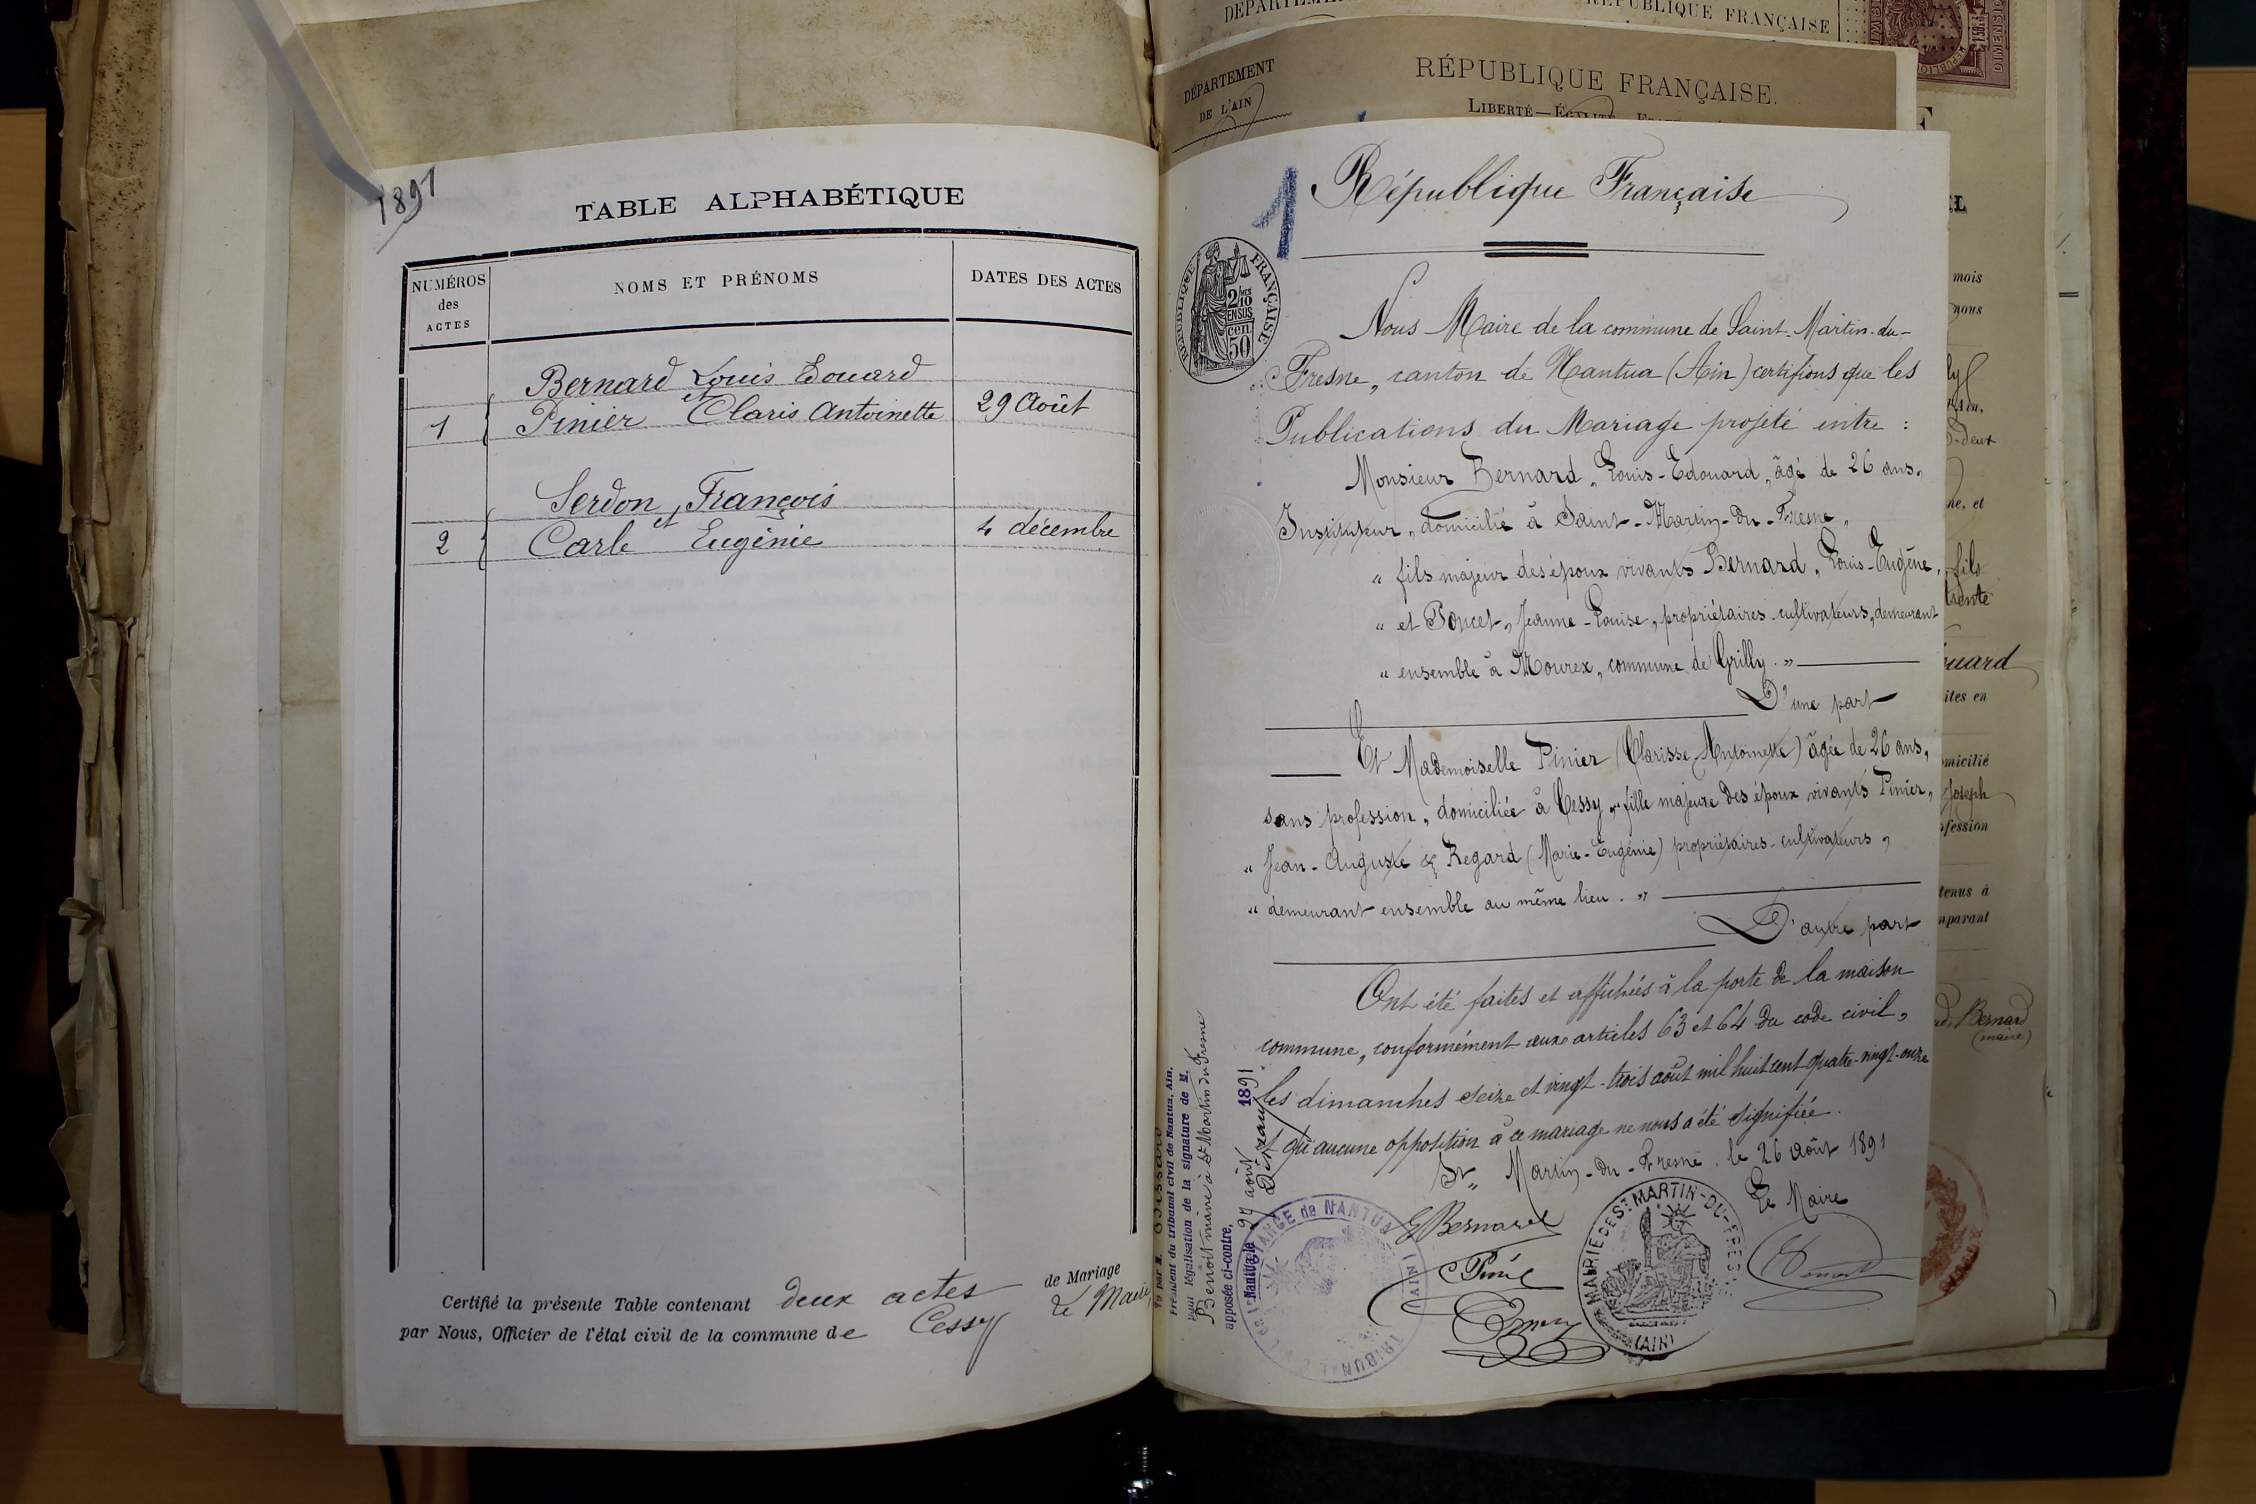 1891
TABLE ALPHABÉTIQUE
NUMÉROS
des
ACTES
NOMS ET PRÉNOMS
DATES DES ACTES
Bernard Louis Edouard
et
1 Pinier Claris Antoinette 29 Août
Serdon, François
et
2 Carle Eugénie 4 décembre
Certifié la présente Table contenant deux actes de Mariage
par Nous, Officier de l'état civil de la commune de Cessy Le Maire
DÉPARTEMENT
DE L'AIN
RÉPUBLIQUE FRANÇAISE
RÉPUBLIQUE FRANÇAISE.
LIBERTÉ — ÉGALITÉ
1
République Française
RÉPUBLIQUE FRANÇAISE
2/10
EN SUS
50 cen
Nous Maire de la commune de Saint-Martin-du-
Fresne, canton de Nantua (Ain) certifions que les
Publications du Mariage projeté entre :
Monsieur Bernard, Louis-Edouard, âgé de 26 ans,
Instituteur, domicilié à Saint-Martin-du-Fresne,
" fils majeur des époux vivants Bernard, Louis-Eugène,
" et Poncet, Jeanne-Louise, propriétaires-cultivateurs, demeurant
" ensemble à Mourex, commune de Grilly. "
D'une part
Et Mademoiselle Pinier (Clarisse Antoinette) âgée de 26 ans,
sans profession, domiciliée à Cessy, " fille majeure des époux vivants Pinier,
" Jean-Auguste & Regard (Marie-Eugénie) propriétaires-cultivateurs,
" demeurant ensemble au même lieu. "
D'autre part
Ont été faites et affichées à la porte de la maison
commune, conformément aux articles 63 et 64 du code civil,
les dimanches seize et vingt-trois août mil huit cent quatre-vingt-onze
et qu'aucune opposition à ce mariage ne nous a été signifiée.
St Martin-du-Fresne, le 26 août 1891
Le Maire
Bernard
MAIRIE DE ST MARTIN-DU-FRESNE
(AIN)
Président du tribunal civil de Nantua, Ain,
pour légalisation de la signature de M.
Benoit maire à St Martin du Fresne
apposée ci-contre,
Nantua, le 27 août 1891
INSTANCE de NANTUA
(AIN)
TRIBUNAL
mois
nous
ne, et
fils
trente
ouard
ites en
micilié
Joseph
fession
tenus à
mparant
Bernard
(maire)